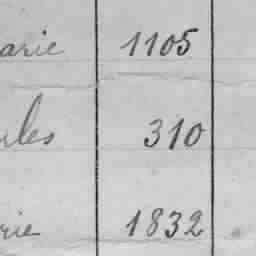 arie 1105
rles 310
rie 1832